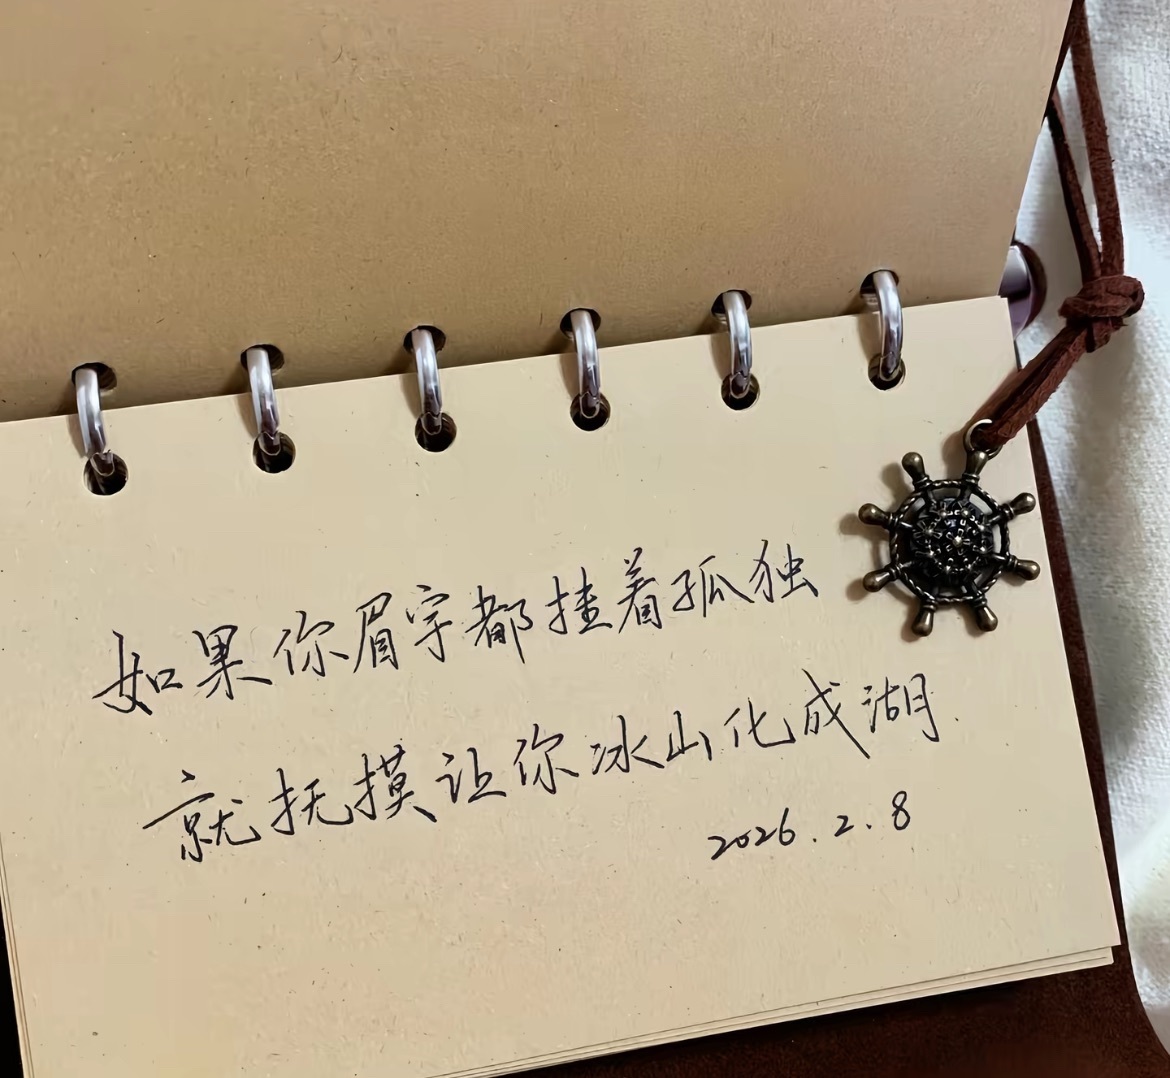 如果你眉宇都挂着孤独
就抚摸让你冰山化成湖.
2026.2.8